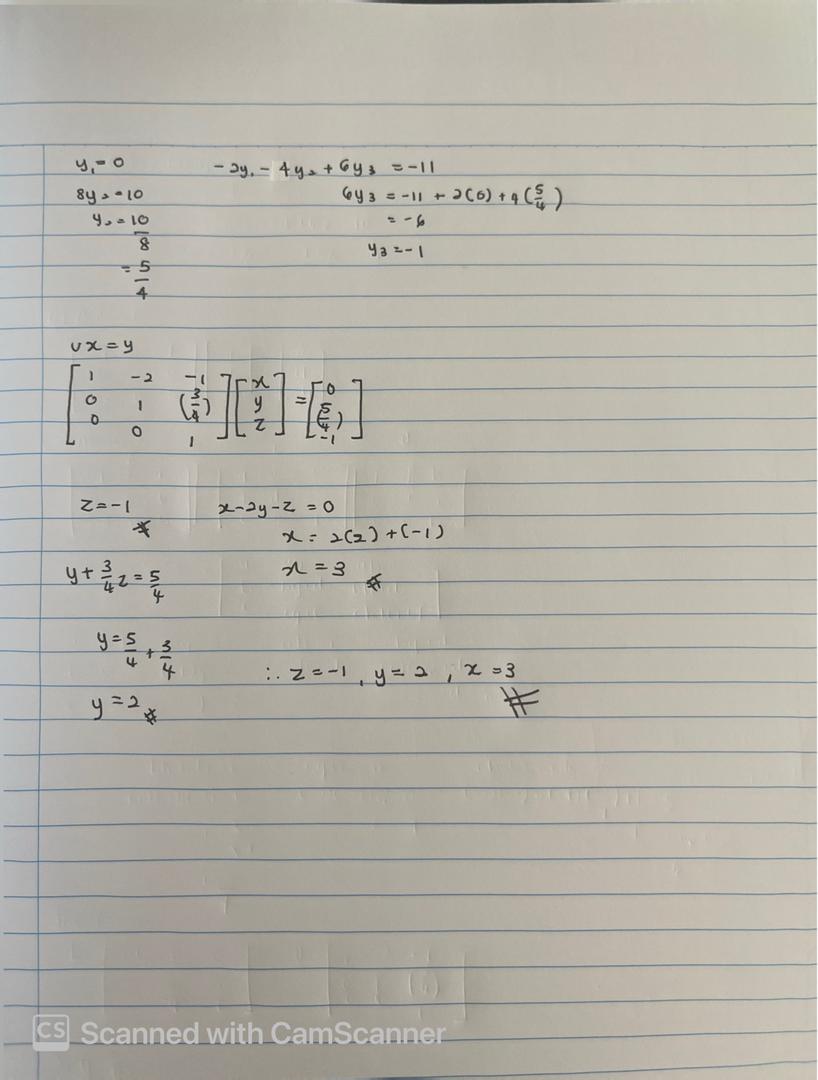 y₁ = 0
8y₂ = 10
y₂ = 10/8
= 5/4
-2y₁ - 4y₂ + 6y₃ = -11
6y₃ = -11 + 2(0) + 4(5/4)
= -6
y₃ = -1
Ux = y
[1 -2 -1; 0 1 (3/4); 0 0 1] [x; y; z] = [0; (5/4); -1]
z = -1 *
y + 3/4 z = 5/4
y = 5/4 + 3/4
y = 2 *
x - 2y - z = 0
x = 2(2) + (-1)
x = 3 *
∴ z = -1, y = 2, x = 3
CS Scanned with CamScanner